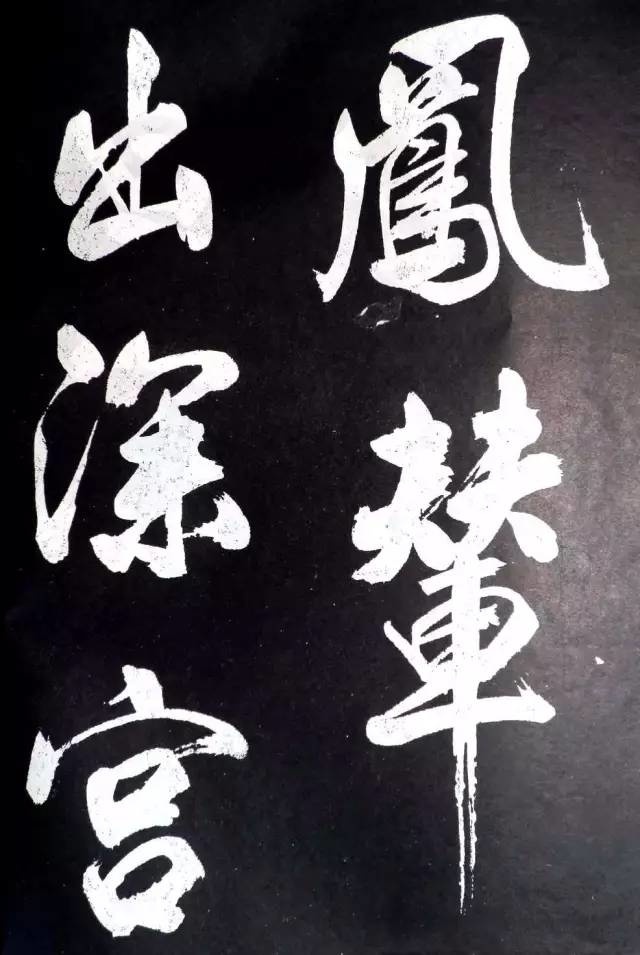 鳳輦
出深宮